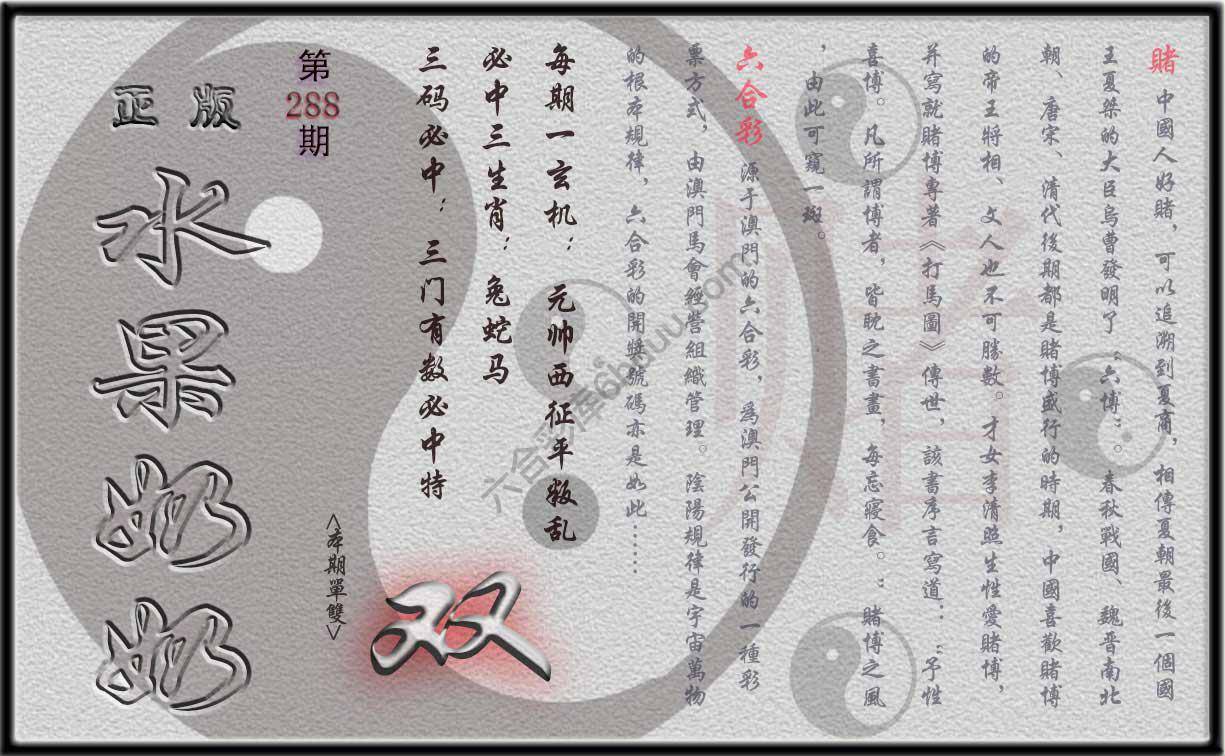 賭 中國人好賭，可以追溯到夏商，相傳夏朝最後一個國
王夏桀的大臣烏曹發明了“六博”。春秋戰國、魏晋南北
朝、唐宋、清代後期都是賭博盛行的時期，中國喜歡賭博
的帝王將相、文人也不可勝數。才女李清照生性愛賭博，
并寫就賭博專著《打馬圖》傳世，該書序言寫道：“予性
喜博。凡所謂博者，皆眈之書畫，每忘寢食。”賭博之風
，由此可窺一斑。
六合彩 源于澳門的六合彩，為澳門公開發行的一種彩
票方式，由澳門馬會經營組織管理。陰陽規律是宇宙萬物
的根本規律，六合彩的開獎號碼亦是如此……
每期一玄机：元帅西征平叛乱
必中三生肖：兔蛇马
三码必中：三门有数必中特
第
288
期
正版
水果奶奶
<本期單雙>
双
賭
六合彩库6hduu.com